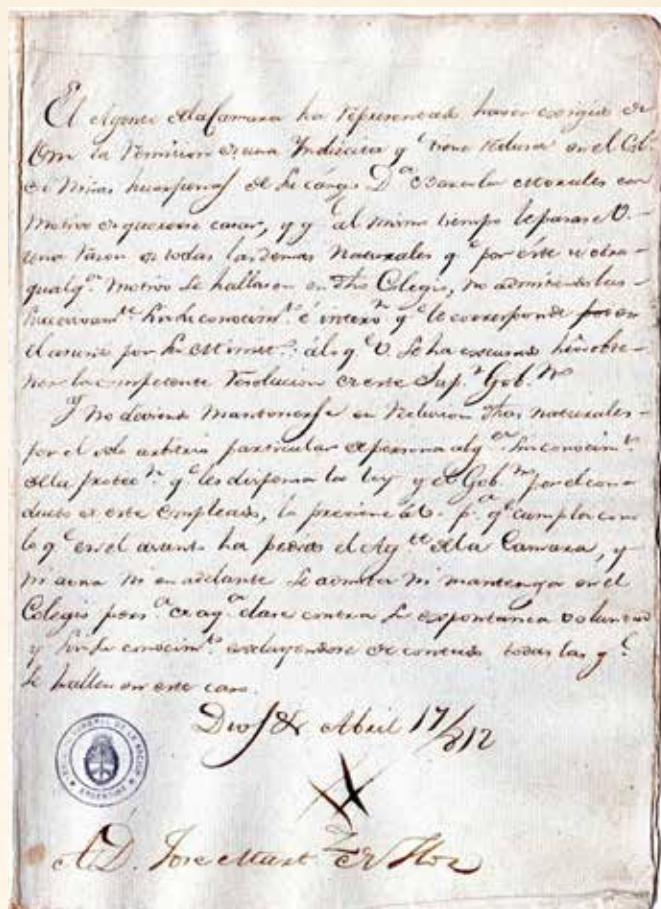 El Agente de la Camara ha representado haver exigido de
Vm la remision de una Yndiecita q.e tiene reclusa en el Col.o
de Niñas huerfanas de su cargo D.a Morales con
motivo de quererse casar, y q.e al mismo tiempo le pasase V.
una razon de todas las demas Naturales q.e por este u otro
qualq.r motivo se hallasen en dho Colegio, no admitiendolas
sin su conocim.to é interv.n q.e le corresponde en
el asunto por su Minist.o: á lo q.e V. se ha escusado
la competente resolucion de este Sup.r Gob.no
Y no deviendo mantenerse en reclusion dhas naturales
por el solo arbitrio particular de persona alg.a sin conocim.to
de la protec.n q.e les dispensa la Ley y el Gob.no por el con-
ducto de este empleado, lo previene á V. p.a q.e cumpla con
lo q.e en el asunto ha pedido el Ag.te de la Camara, y
ni aora ni en adelante se admita ni mantenga en el
Colegio pers.a de alg.a clase contra su expontanea voluntad
y sin su conocim.to excluyendose de contado todas las q.e
se hallen en este caso.
Dios &c Abril 17/812
A D. Jose Mart.z de Hoz
GENERAL DE LA NACION
ARGENTINA